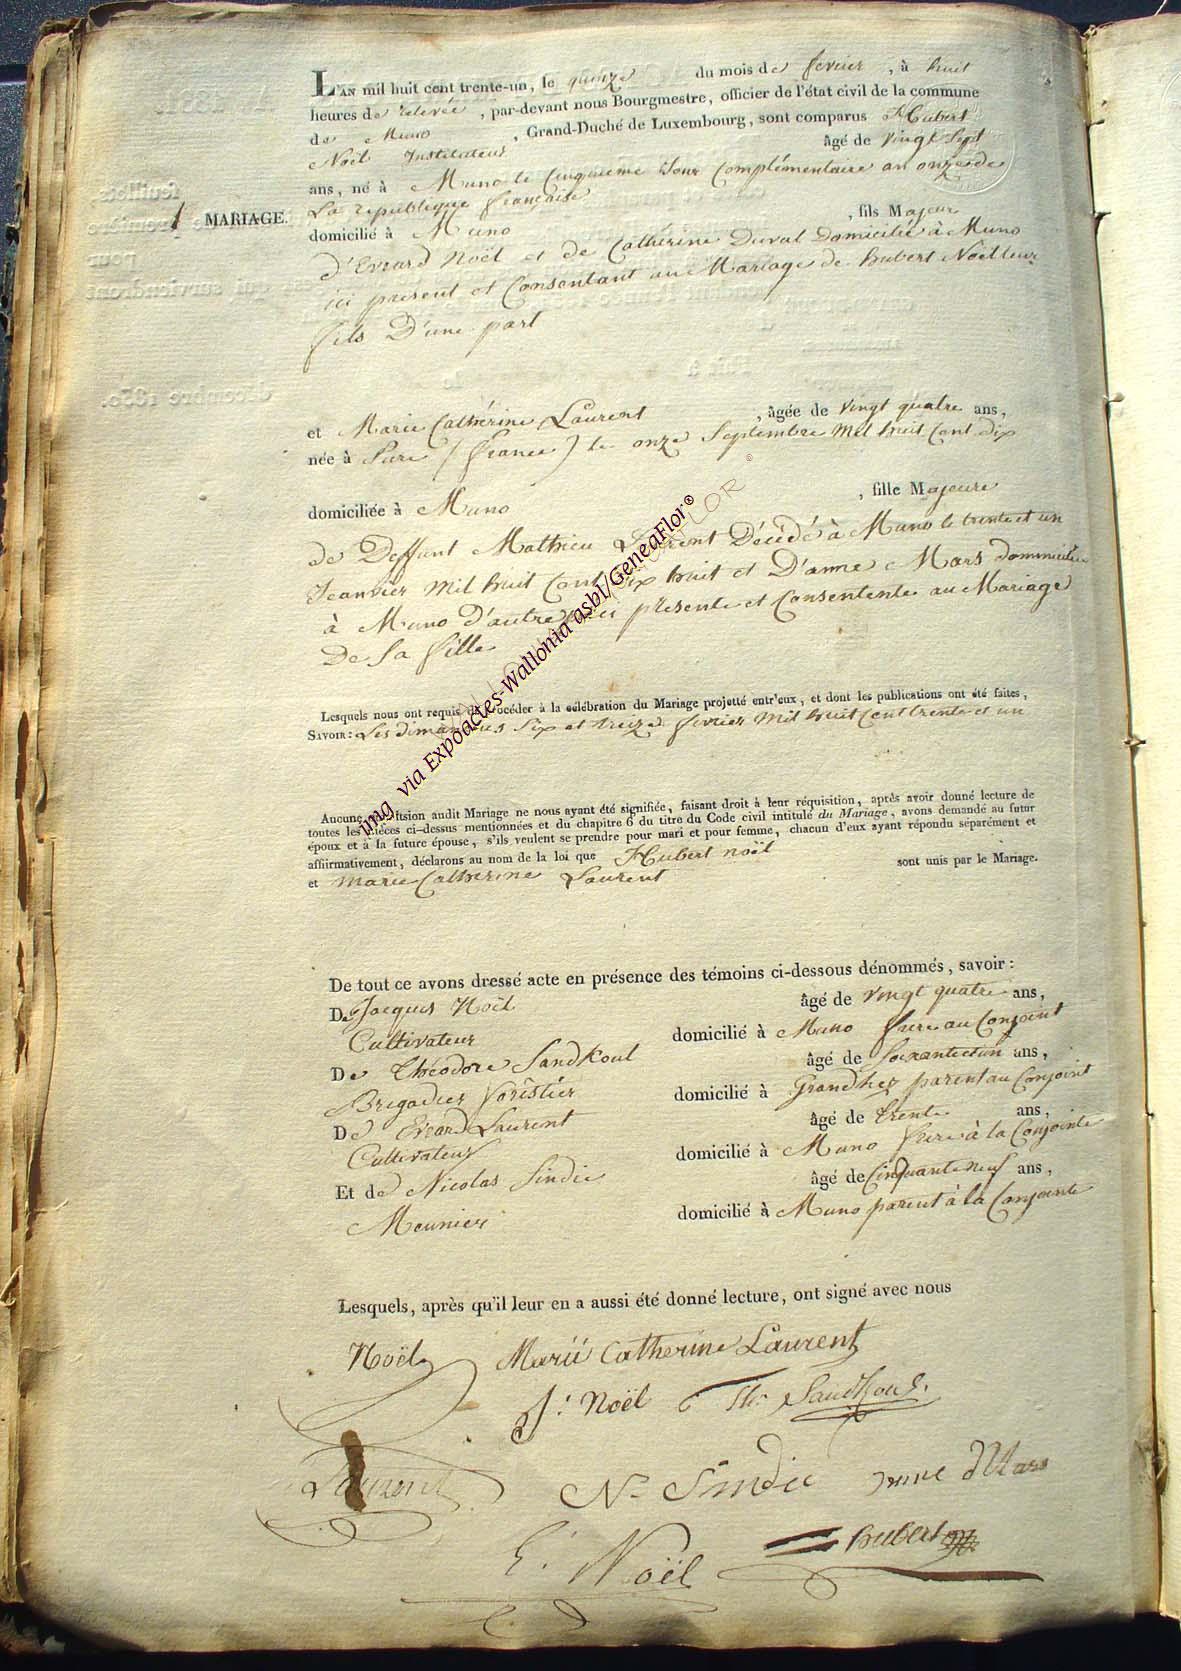 L'AN mil huit cent trente-un, le quinze du mois de fevrier, à huit
heures de relevée, par-devant nous Bourgmestre, officier de l'état civil de la commune
de Muno, Grand-Duché de Luxembourg, sont comparus Hubert
Noël Instituteur âgé de vingt sept
ans, né à Muno le Cinquieme Jour Complémentaire an onze de
La republique francaise
1 MARIAGE.
domicilié à Muno, fils Majeur
d'Evrard Noël et de Catherine Duval Domicilié à Muno
ici present et Consentant au Mariage de hubert Noël leur
fils D'une part
et Marie Catherine Laurent, âgée de vingt quatre ans,
née à Pure (france) le onze Septembre mil huit Cent dix
domiciliée à Muno, fille Majeure
de Deffunt Mathieu Laurent Décédé à Muno le trente et un
Jeanvier mil huit Cent dix huit et D'anne Mars dommiciliée
à Muno d'autre ici presente et Consentente au Mariage
De Sa fille
Lesquels nous ont requis de procéder à la célébration du Mariage projetté entr'eux, et dont les publications ont été faites,
SAVOIR: Les dimanches Six et treize fevrier mil huit Cent trente et un
Aucune opposition audit Mariage ne nous ayant été signifiée, faisant droit à leur réquisition, après avoir donné lecture de
toutes les pièces ci-dessus mentionnées et du chapitre 6 du titre du Code civil intitulé du Mariage, avons demandé au futur
époux et à la future épouse, s'ils veulent se prendre pour mari et pour femme, chacun d'eux ayant répondu séparément et
affirmativement, déclarons au nom de la loi que Hubert noël
et marie Catherine Laurent sont unis par le Mariage.
De tout ce avons dressé acte en présence des témoins ci-dessous dénommés, savoir:
De Jacques Noël âgé de vingt quatre ans,
Cultivateur domicilié à Muno frere au Conjoint
De Théodore Sandkoul âgé de Soixante et un ans,
Brigadier forèstier domicilié à Grandhez parent au Conjoint
De Evrard Laurent âgé de trente ans,
Cultivateur domicilié à Muno frere à la Conjointe
Et de Nicolas Sindic âgé de Cinquante neuf ans,
Meunier domicilié à Muno parent à la Conjointe
Lesquels, après qu'il leur en a aussi été donné lecture, ont signé avec nous
Noël Marii Catherine Laurent
J: Noël Th: Sandkoul.
Laurent N Sindic anne Mars
hubert
E. Noël
img via Expoactes-Wallonia asbl/GeneaFlor®